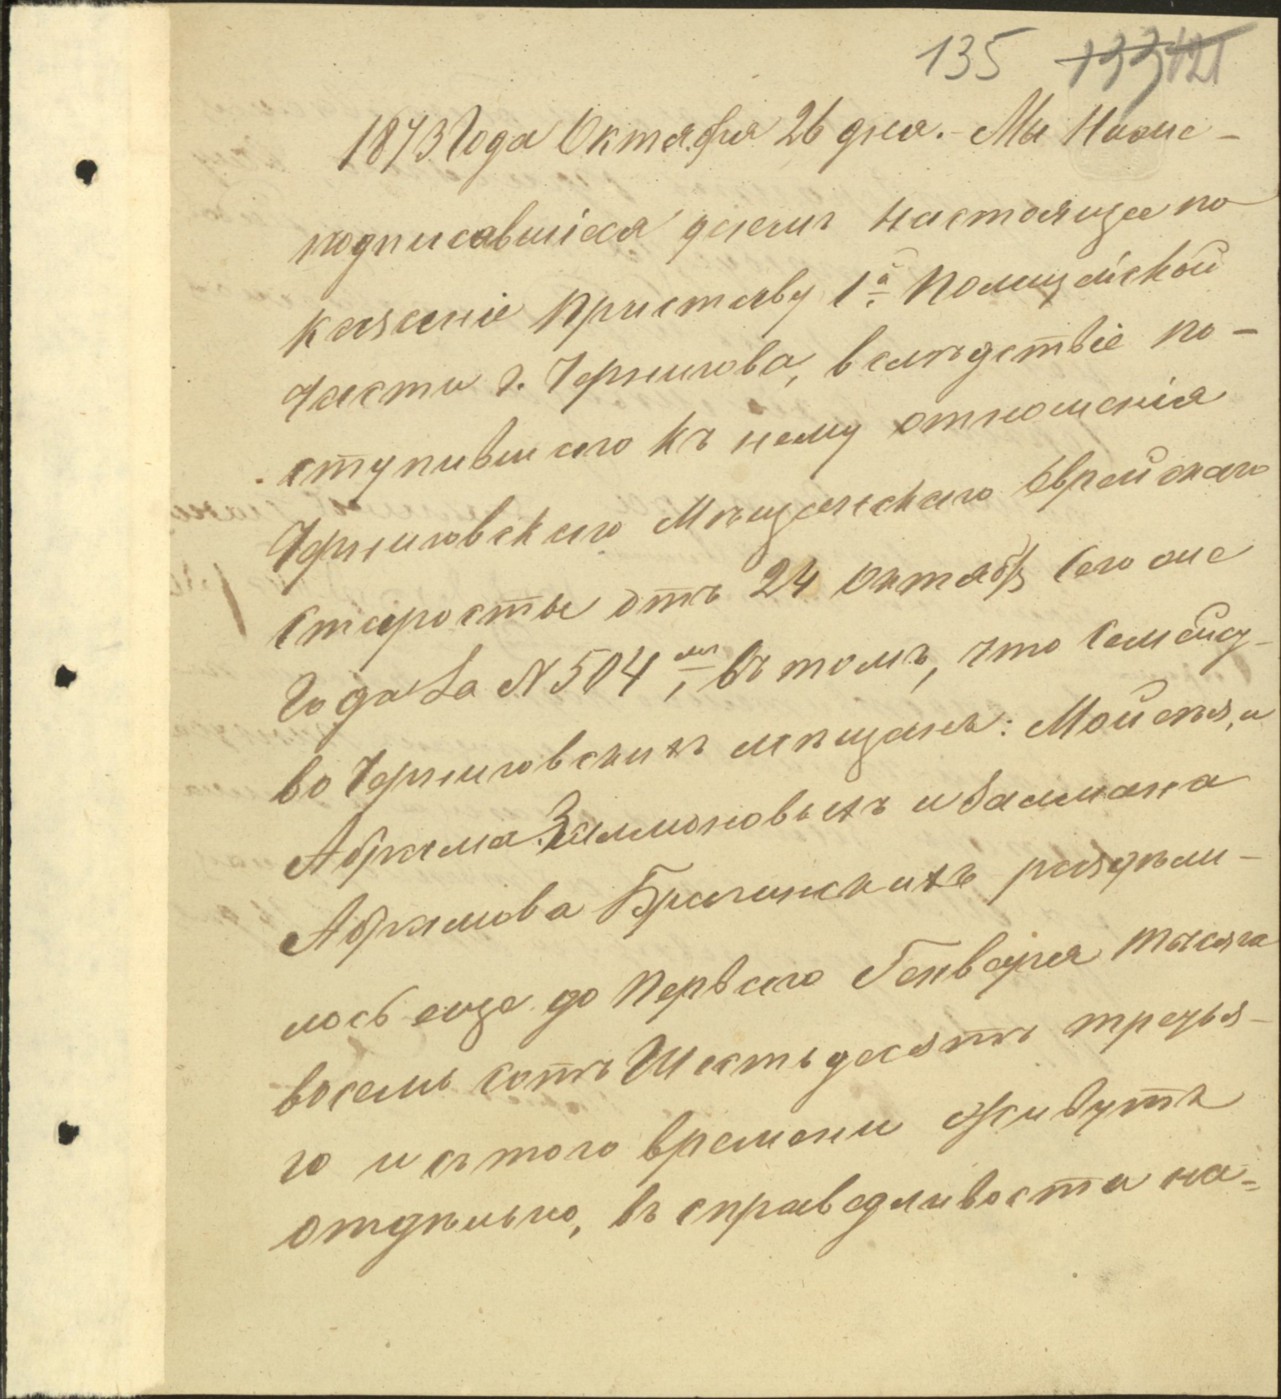 135 133 121
1873 Года Октября 26 дня. Мы Ниже-
подписавшіеся даемъ настоящее по
казаніе Приставу 1й Полицейской
Части г. Чернигова, вслѣдствіе по-
ступившаго къ нему отношенія
Черниговскаго Мѣщанскаго Еврейскаго
Старосты отъ 24 Октября сего же
Года За № 504мъ, въ томъ, что Семейст-
во Черниговскихъ мѣщанъ: Мойсея, и
Абрама Залмоновыхъ и Залмана
Абрамова Брагинскихъ раздѣли-
лось еще до Перваго Генваря тысяча
восемь сотъ Шестьдесятъ третья-
го и съ того времени живутъ
отдѣльно, въ справедливости на-